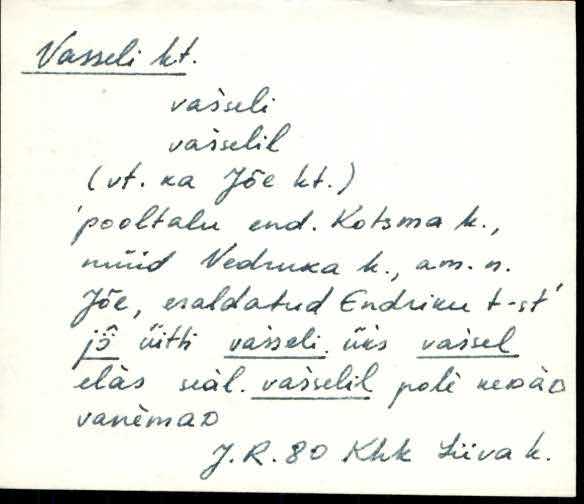 Vasseli kt.
vas̀seli
vas̀selil
(vt. ka Jõe kt.)
'pooltalu end. Kotsma k.,
nüüd Vedruka k., am. n.
Jõe, eraldatud Endriku t-st'
jȭ üitti vas̀seli. üks vas̀sel
eläs seäl. vas̀selil polè
vanèmaᴅ
J.R. 80 Khk Liiva k.